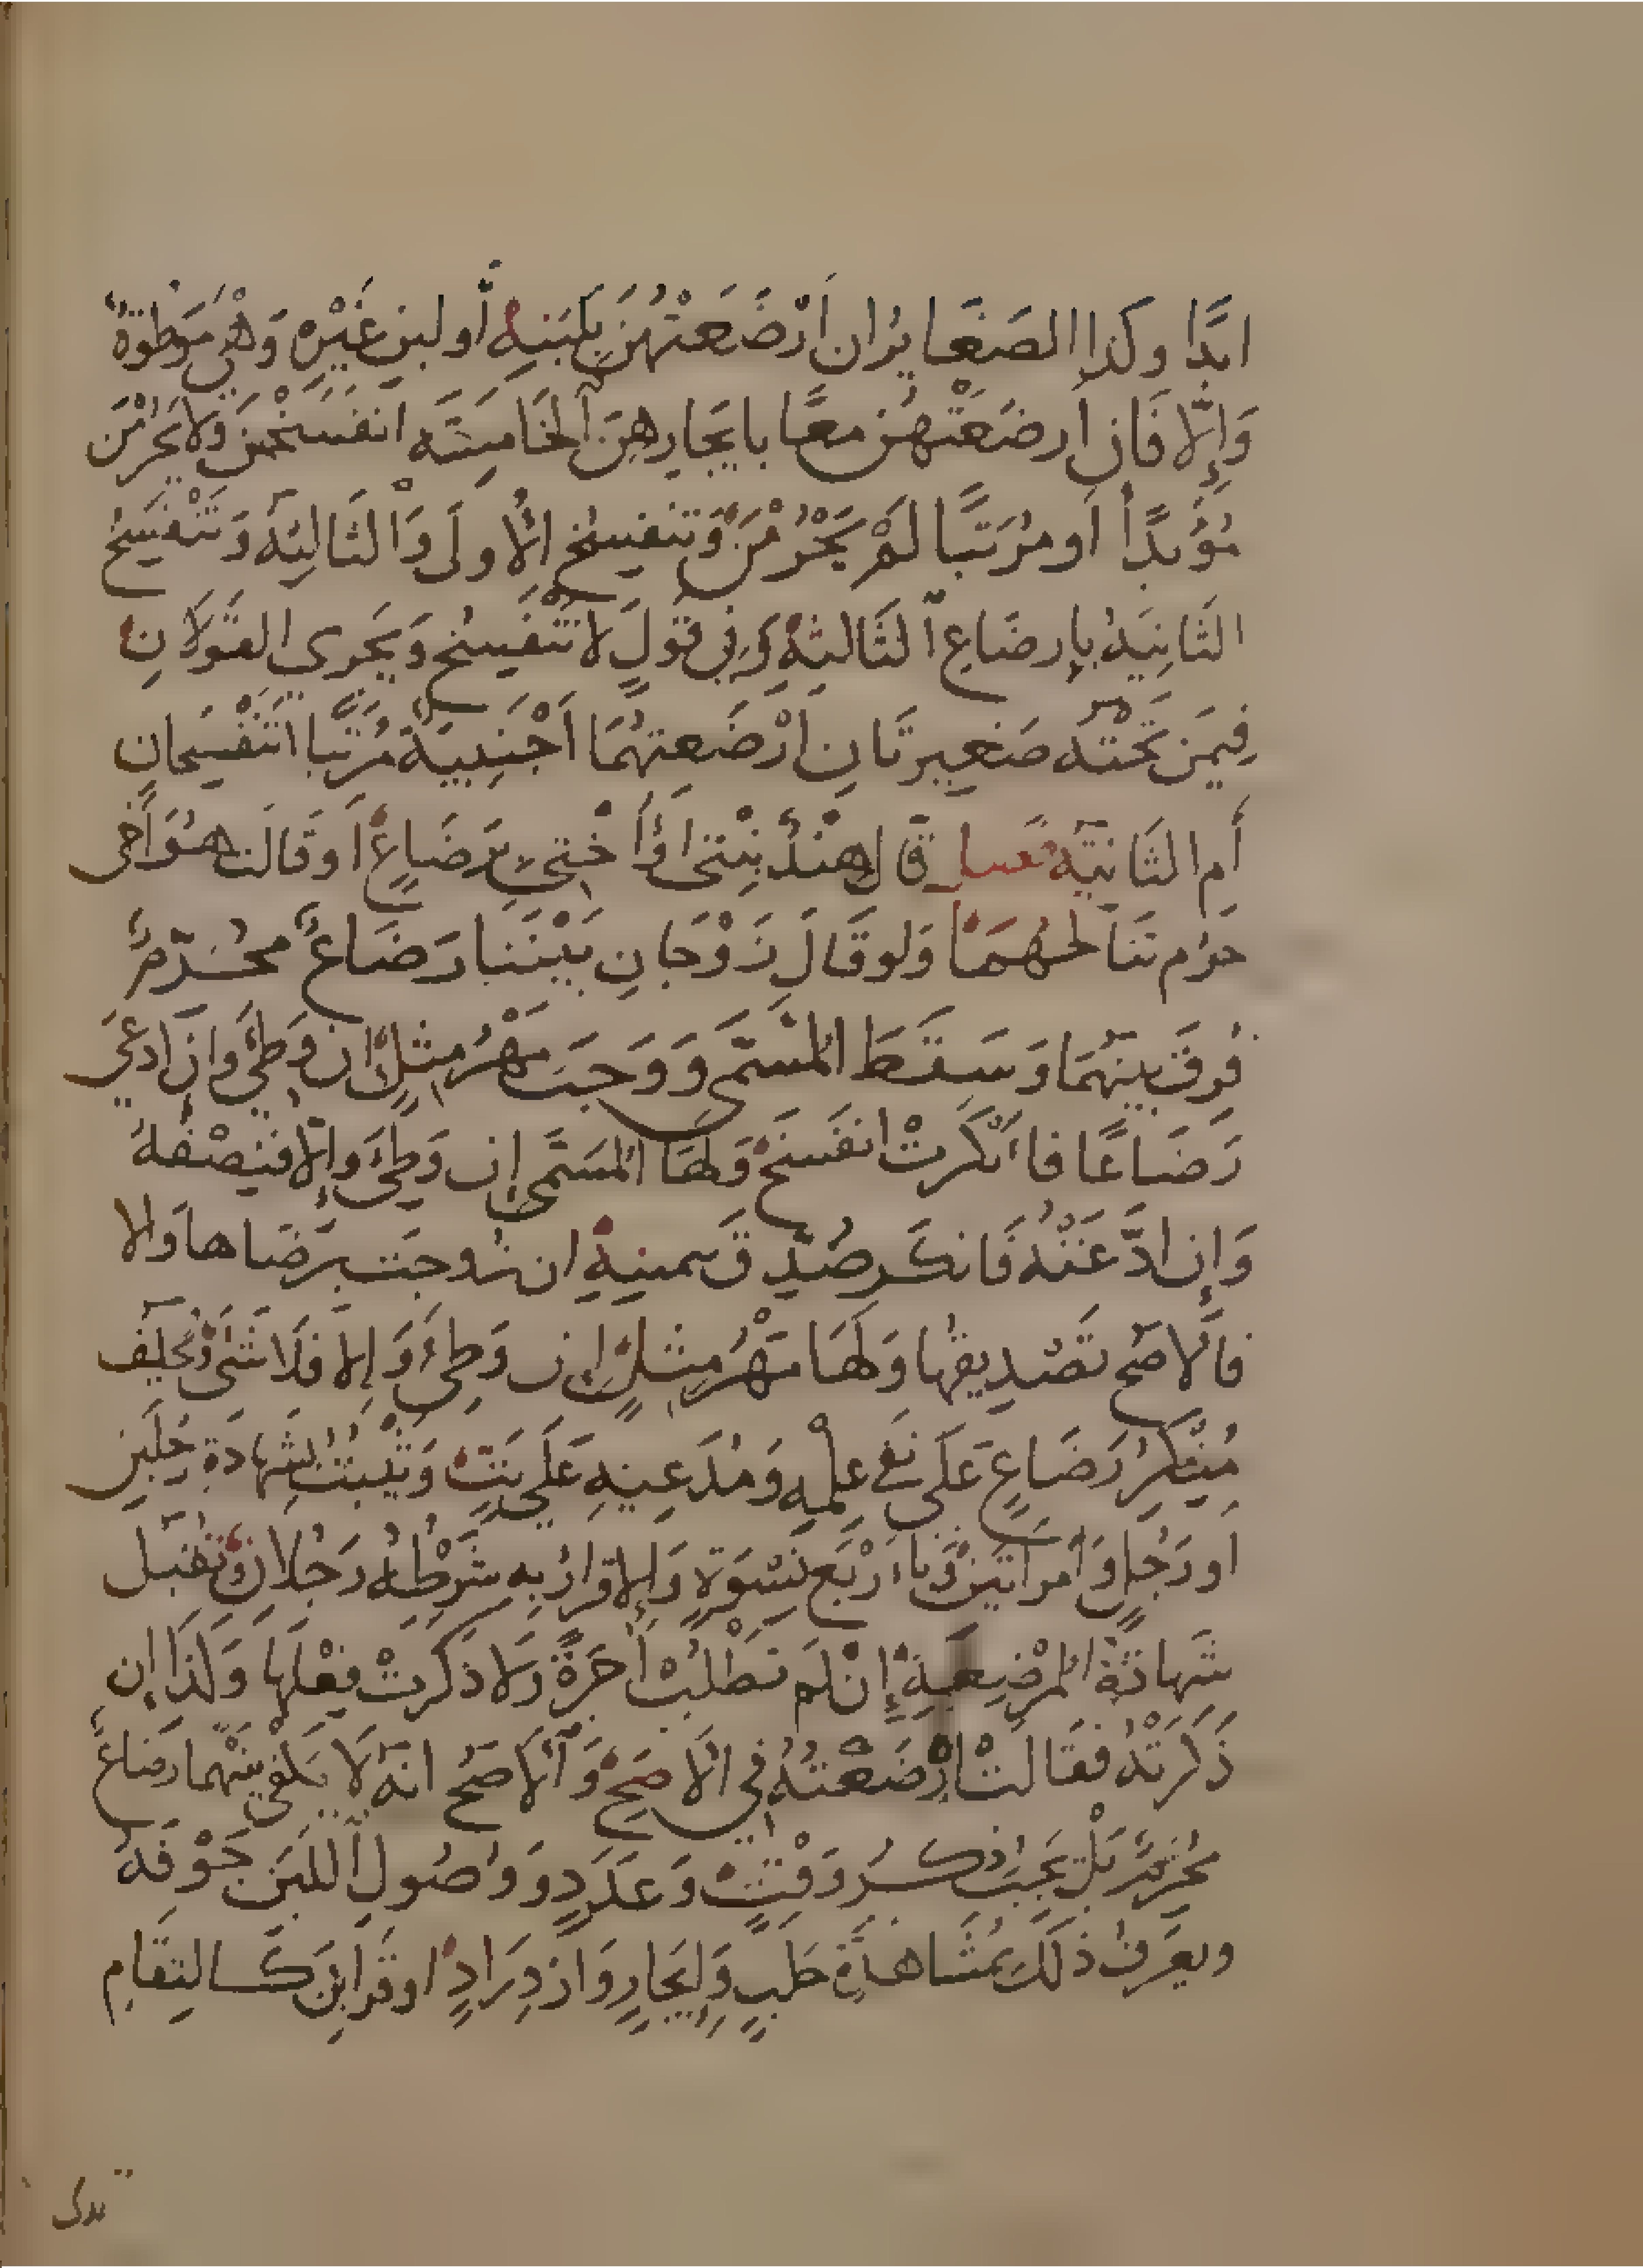 ابدًا وكذا الصغاير ان ارضعتهن بلبنه أو لبن غيره وهي موطوة
وإلا فان ارضعتهن معًا بايجارهن الخامسة انفسخن ولا يحرمن
مؤبدًا أو مرتبًا لم يحرمن وتنفسخ الاولى والثالثة وتنفسخ
الثانية بإرضاع الثالثة وفي قول لا تنفسخ ويجرى القولان
فيمن تحته صغيرتان ارضعتهما اجنبية مرتبا اتنفسخان
أم الثانية فصل قال هند بنتى أو أختى برضاع أو قالت هو أخى
حرم تناكحهما ولو قال زوجان بيننا رضاع محرم
فرق بينهما وسقط المسمى ووجب مهر مثل ان وطئ وان ادعى
رضاعًا فانكرت انفسخ ولها المسمى إن وطئ وإلا فنصفه
وإن ادعته فانكر صدق بيمينه ان زوجت برضاها والا
فالاصح تصديقها ولها مهر مثل إن وطئ وإلا فلا شئ ويحلف
منكر رضاع على نفي علمه ومدعيه على بت ويثبت بشهادة رجلين
او رجل وامراتين وباربع نسوة والاقرار به شرطه رجلان وتقبل
شهادة المرضعة إن لم تطلب أجرة ولا ذكرت فعلها وكذا إن
ذكرته فقالت ارضعته في الاصح والاصح انه لا يكفي بينهما رضاع
محرم بل يجب ذكر وقت وعدد ووصول اللبن جوفه
ويعرف ذلك بمشاهدة حلب وإيجار وازدراد او قراين كالتقام
ثدى